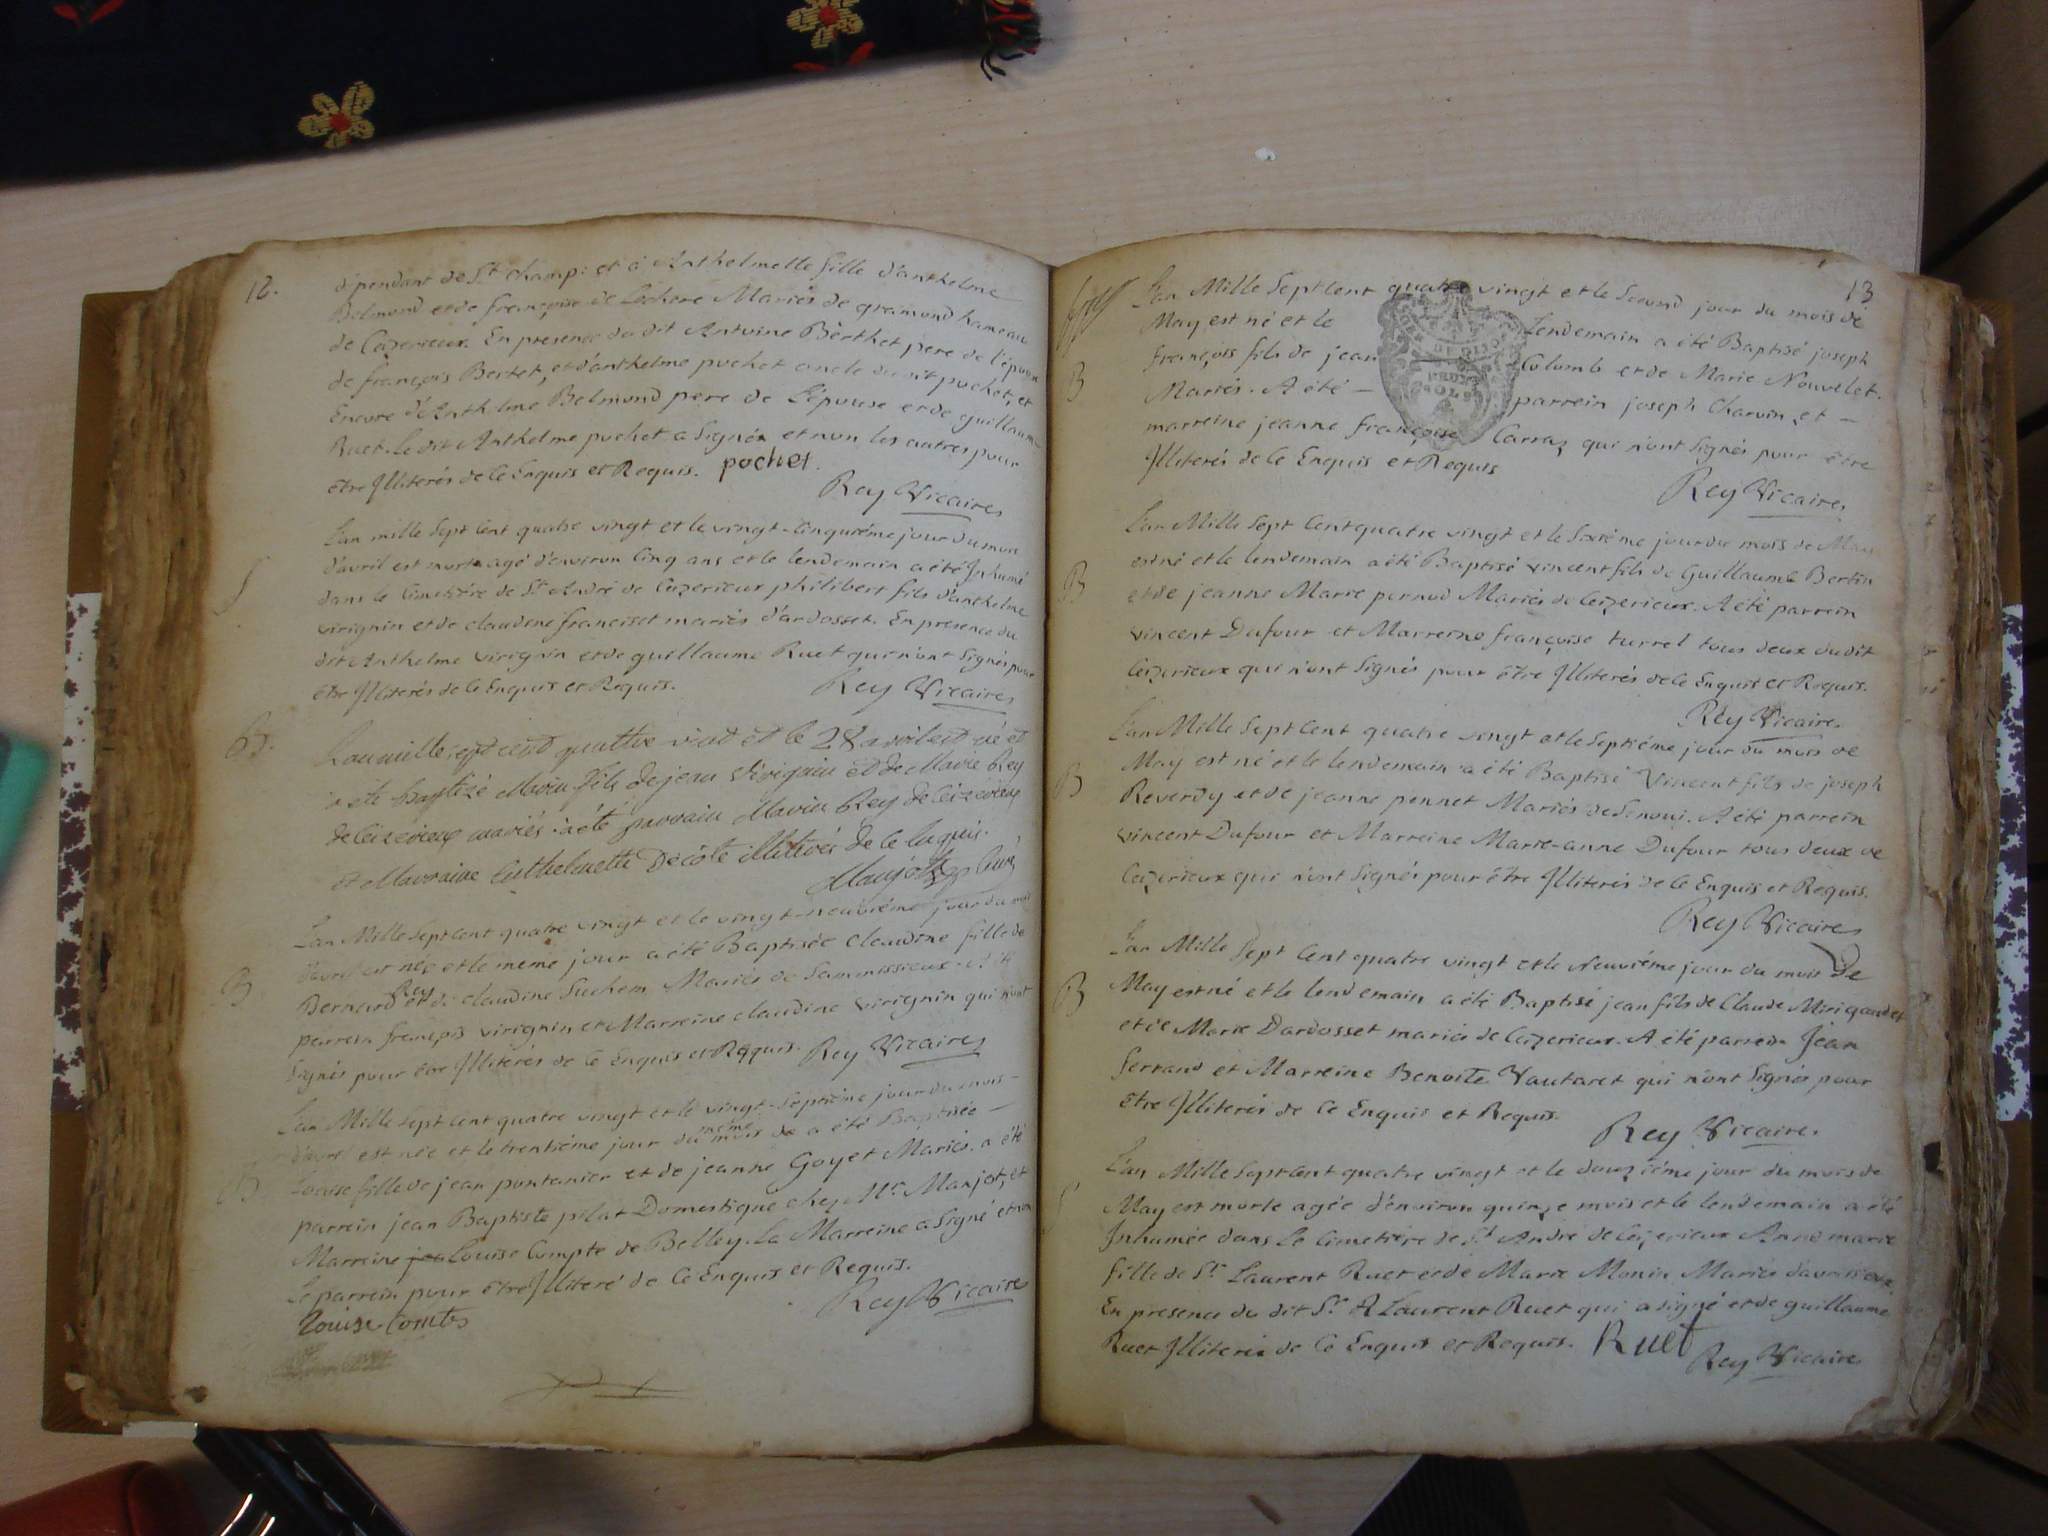 12.
dépendant de St champ: et à Anthelmette fille d'anthelme
Belmond et de françoise de Léchere Mariés de gramond hameau
de Ceÿzerieux. En presence du dit Antoine Bèrthet pere de l'époux
de françois Bertet, et d'anthelme pochet oncle du dit pochet, et
Encore d'Anthelme Belmond pere de L'épouse et de guillaume
Ruet. Le dit Anthelme pochet a Signé et non les autres pour
être Illiterés de Ce Enquis et Requis. pochet.
Rey Vicaire
L'an mille sept Cent quatre vingt et le vingt-Cinquiéme jour du mois
d'avril est mort agé d'environ Cinq ans et le lendemain a été Inhumé
S
dans le Cimetière de St André de Ceÿzerieux philibert fils d'anthelme
virignin et de claudene franciset mariés d'ardosset. En presence du
dit Anthelme virignin et de guillaume Ruet qui n'ont Signés pour
être Illiterés de Ce Enquis et Requis.
Rey Vicaire
B.
L'an mille sept cent quattre vint et le 28 avril est né et
a été baptizé Marin fils de jean Virignin et de Marie Rey
de Ceizerieux mariés : a été parrain Marin Rey de Ceizerieux
et Marraine Enthelmette Décôte illiterés de Ce Enquis.
Manjot Curé
L'an Mille Sept Cent quatre vingt et le vingt-neuviéme jour du mois
d'avril est née et le même jour a été Baptisée claudine fille de
B
Bernard Rey et de claudine Suchem Mariés de Sammissieux. A été
parrein françois virignin et Marreine claudine virignin qui n'ont
Signés pour être Illiterés de Ce Enquis et Requis. Rey Vicaire
L'an Mille Sept Cent quatre vingt et le vingt-Septiéme jour du mois –
d'avril est née et le trentiéme jour du même mois de a été Baptisée –
B
Louise fille de jean pontanier et de jeanne Goyet Mariés. a été
parrein jean Baptiste pilat Domestique chez Mr. Manjot, et
Marreine jea Louise Compte de Belley. La Marreine a Signé et non
Le parrein pour être Illiteré de Ce Enquis et Requis.
Rey Vicaire
Louise Comte
13
L'an Mille Sept Cent quatre vingt et le Second jour du mois de
May est né et le Lendemain a été Baptisé joseph
françois fils de jean Colomb et de Marie Nouvelet.
B
Mariés. A été – parrein joseph Charvin, et –
marreine jeanne françoise Carraz qui n'ont Signés pour être
Illiterés de Ce Enquis et Requis
Rey Vicaire
L'an Mille Sept Cent quatre vingt et le Sixiéme jour du mois de May
est né et le lendemain a été Baptisé vincent fils de Guillaume Bertin
B
et de jeanne Marie pernod Mariés de Ceÿzerieux. A été parrein
vincent Dufour et Marreine françoise turrel tous deux du dit
Ceÿzerieux qui n'ont Signés pour être Illiterés de Ce Enquis et Requis.
Rey Vicaire
L'an Mille Sept Cent quatre vingt et le Septiéme jour du mois de
May est né et le lendemain a été Baptisé Vincent fils de joseph
B
Reverdy et de jeanne pennet Mariés de Senoui. A été parrein
vincent Dufour et Marreine Marie-anne Dufour tous deux de
Ceÿzerieux qui n'ont Signés pour être Illiterés de Ce Enquis et Requis.
Rey Vicaire
L'an Mille Sept Cent quatre vingt et le Neuviéme jour du mois De
May est né et le lendemain a été Baptisé jean fils de Claude Mirigaudet
B
et de Marie Dardosset mariés de Ceÿzerieux. A été parrein Jean
Serrand et Marreine Benoite Vautaret qui n'ont Signés pour
être Illiterés de Ce Enquis et Requis.
Rey Vicaire.
L'an Mille Sept Cent quatre vingt et le douziéme jour du mois de
May est morte agée d'environ quinze mois et le lendemain a été
S
Inhumée dans Le Cimetière de St André de Ceÿzerieux Anne marie
fille de Sr Laurent Ruet et de Marie Monin Mariés d'avrissieux
En presence du dit Sr Laurent Ruet qui a signé et de guillaume
Ruet Illiteré de Ce Enquis et Requis. Ruet
Rey Vicaire